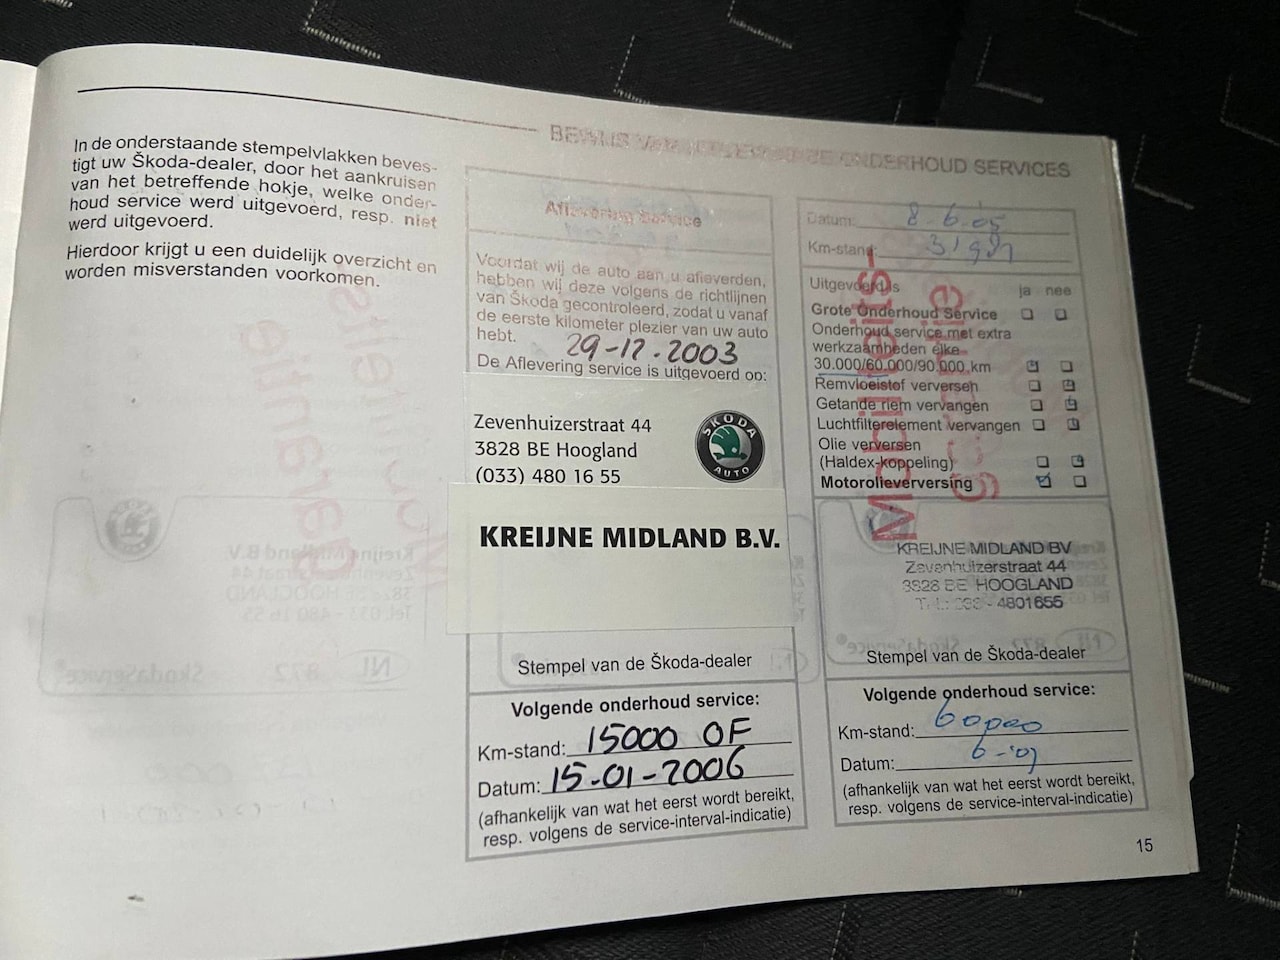 In de onderstaande stempelvlakken beves-
tigt uw Škoda-dealer, door het aankruisen
van het betreffende hokje, welke onder-
houd service werd uitgevoerd, resp. niet
werd uitgevoerd.
Hierdoor krijgt u een duidelijk overzicht en
worden misverstanden voorkomen.
BEWIJS VAN ONDERHOUD SERVICES
Aflevering Service
Voordat wij de auto aan u afleverden,
hebben wij deze volgens de richtlijnen
van Škoda gecontroleerd, zodat u vanaf
de eerste kilometer plezier van uw auto
hebt.
29-12-2003
De Aflevering service is uitgevoerd op:
Zevenhuizerstraat 44
3828 BE Hoogland
(033) 480 16 55
ŠKODA
AUTO
KREIJNE MIDLAND B.V.
Stempel van de Škoda-dealer
Volgende onderhoud service:
Km-stand: 15000 OF
Datum: 15-01-2006
(afhankelijk van wat het eerst wordt bereikt,
resp. volgens de service-interval-indicatie)
Datum: 8-6-05
Km-stand:
Uitgevoerd is ja nee
Grote Onderhoud Service
Onderhoud service met extra
werkzaamheden elke
30.000/60.000/90.000 km
Remvloeistof verversen
Getande riem vervangen
Luchtfilterelement vervangen
Olie verversen
(Haldex-koppeling)
Motorolieverversing
Mobiliteits-
KREIJNE MIDLAND BV
Zevenhuizerstraat 44
3828 BE HOOGLAND
Tel.: 033 - 4801655
Stempel van de Škoda-dealer
Volgende onderhoud service:
Km-stand: 60000
Datum: 6-'07
(afhankelijk van wat het eerst wordt bereikt,
resp. volgens de service-interval-indicatie)
15